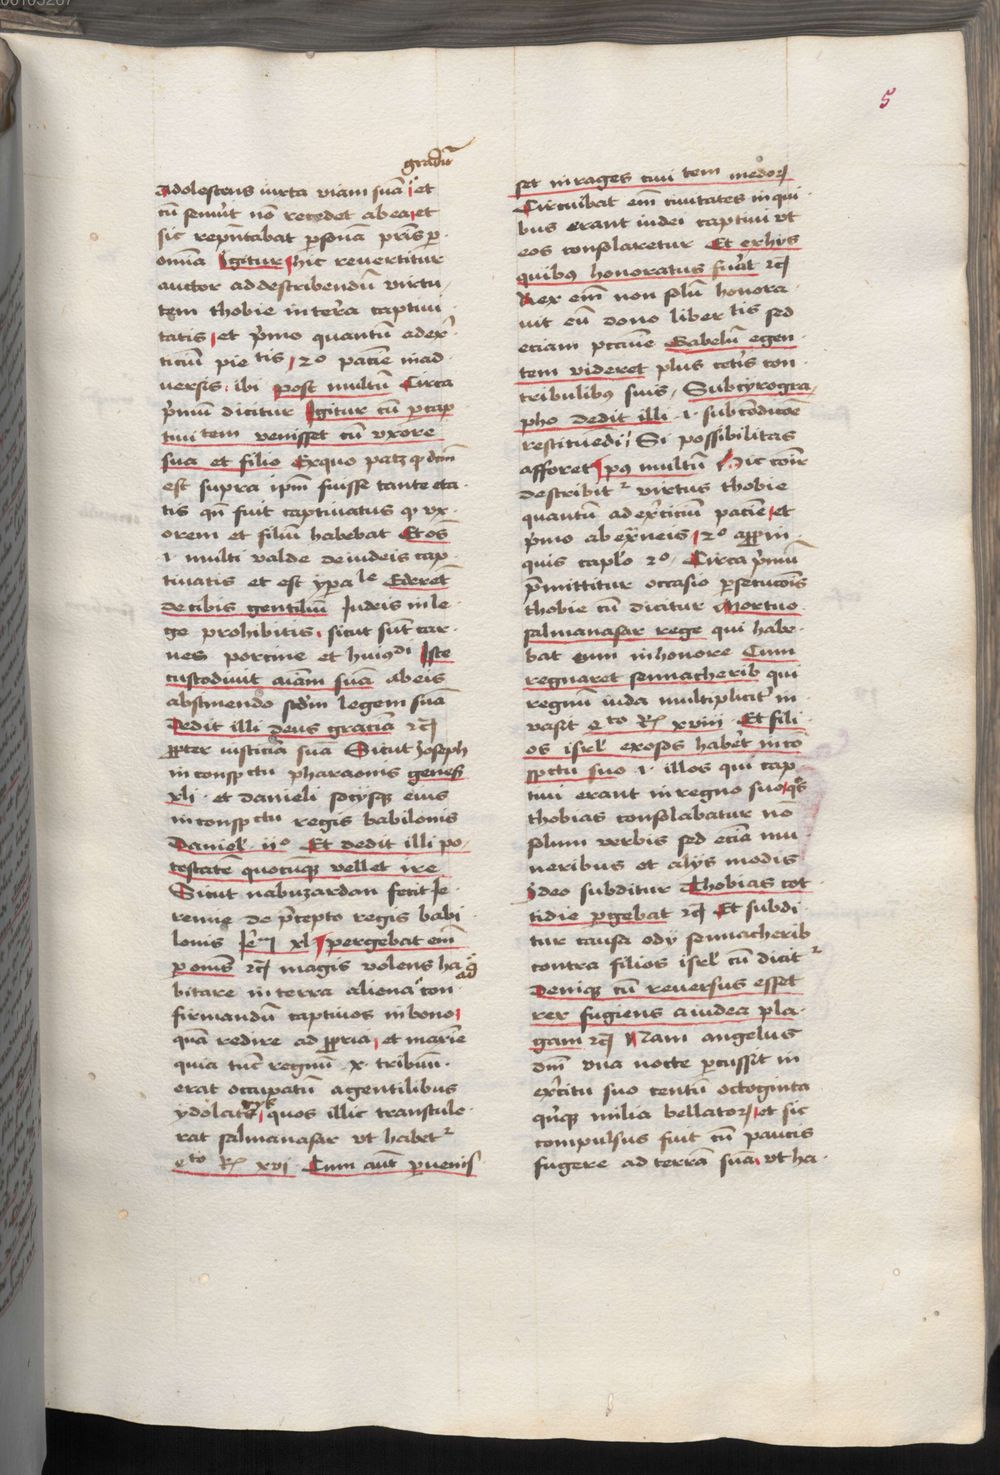 5
gradiẽ
Adolescens iuxta viam suã et
cũ senuit nõ recedet ab ea et
sic repñtabat ꝑsonã pr̃is ꝑ
omĩa Igitur hic reuertitur
auctor ad describendũ virtu
tem thobie in terra captiui
tatis et p̃mo quantũ ad exer
ticiũ pietis 2º pacie in ad
uersis ibi post multũ Circa
p̃mũ dicitur Igitur cũ ꝑ cap
tiuitem venisset cũ vxore
sua et filio Ex quo patꝫ ꝙ dcm̃
est supra ip̃m fuisse tante eta
tis qñ fuit captiuatus ꝙ vx
orem et filiũ habebat Et oẽs
.i. multi valde de iudeis cap
tiuatis et est ypᵃˡᵉ Ederet
de cibis gentiliũ Iudeis in le
ge prohibitis sicut sũt car
nes porcine et huiꝯᵈⁱ Iste
custodiuit aiam suã ab eis
abstinendo scdm̃ legem suã
Dedit illi deus graciã ⁊c̃
ꝓpter iusticiã sua Sicut Joseph
in conspctu pharaonis geneẽ
xli et danieli socijsqꝫ eius
in conspctu regis babilonis
Daniel iiº Et dedit illi po
testatẽ quocũqꝫ vellet ire
Sicut nabuzardan fecit Ie
remie de p̃cepto regis babi
lonis Iẽ xl pergebat em̃
ꝑ om̃s ⁊c̃ magis volens ha
ad
bitare in terra aliena con
firmandũ captiuos in bono
quã redire ad ꝓpria et maxĩe
quia tũc regnũ x tribuũ
erat occupatũ a gentilibus
ydolatris quos illic transtule
rat salmanasar vt habetᷣ
4ᵗᵒ Rͫ xvij Cum aũt ꝑuenis
set in rages ciuitem medoꝝ
Circuibat em̃ ciuitates in qui
bus erant iudei captiui vt
eos consolaretur Et ex hijs
quibꝯ honoratus fuãt ⁊c̃
Rex em̃ non solũ honora
uit eũ dono libertis sed
eciam pecunie Gabelũ egen
tem videret plus cetis con
tribulibꝯ suis Sub cyrogra
pho dedit illi .i. sub condicoẽ
restituedi Si possibilitas
afforet pꝯ multũ Hic coĩr
describitᷣ virtus thobie
quantũ ad exerciciũ pacie et
p̃mo ab extraneis 2º a ꝓpin
quis caplo 2º Circa p̃mũ
p̃mittitur occasio ꝑsecucõis
thobie cũ dicitur Mortuo
salmanasar rege qui habe
bat eum in honore Cum
regnaret sennacherib qui
regnũ iuda multiplicitᷣ in
vasit 4ᵗᵒ Rͫ xviij Et fili
os isrl exosos haberet in cõ
spctu suo .i. illos qui cap
tiui erant in regno suo qꝫ
thobias consolabatur nõ
solum verbis sed eciã mu
neribus et alijs modis
Ideo subditur Thobias cot
tidie ꝑgebat ⁊c̃ Et subdi
tur causa odij sennacherib
contra filios isrl cũ dicitᷣ
Deniqꝫ cũ reuersus esset
rex fugiens a iudea pla
gam ⁊c̃ Nam angelus
dñi vna nocte ꝑcussit in
excitu suo centũ octoginta
quĩqꝫ milia bellatoꝝ et sic
compulsus fuit cũ paucis
fugere ad terrã suã vt ha